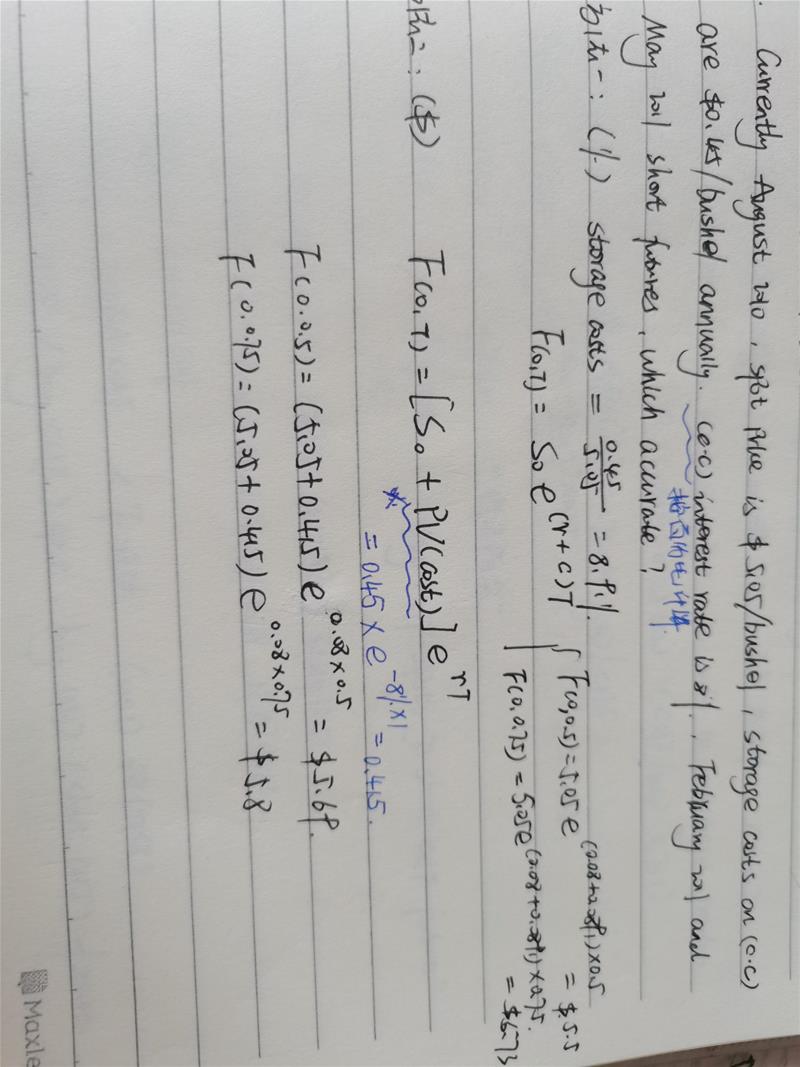 Currently August 2010, spot price is $5.05/bushel, storage costs on (c.c)
are $0.45/bushel annually. (c.c) interest rate is 8%. February 2011 and
May 2011 short futures, which accurate?
: (%) storage costs = 0.45/5.05 = 8.91%.
F(0,T) = S0 e^(r+c)T
F(0,0.5) = 5.05e^(0.08+0.0891)×0.5 = $5.5
F(0,0.75) = 5.05e^(0.08+0.0891)×0.75. = $5.73
: ($) F(0,T) = [S0 + PV(cost)] e^rT
= 0.45 × e^-8%×1 = 0.415.
F(0.0.5) = (5.05+0.415) e^0.08×0.5 = $5.69.
F(0.0.75) = (5.05+0.415) e^0.08×0.75 = $5.8
Maxle